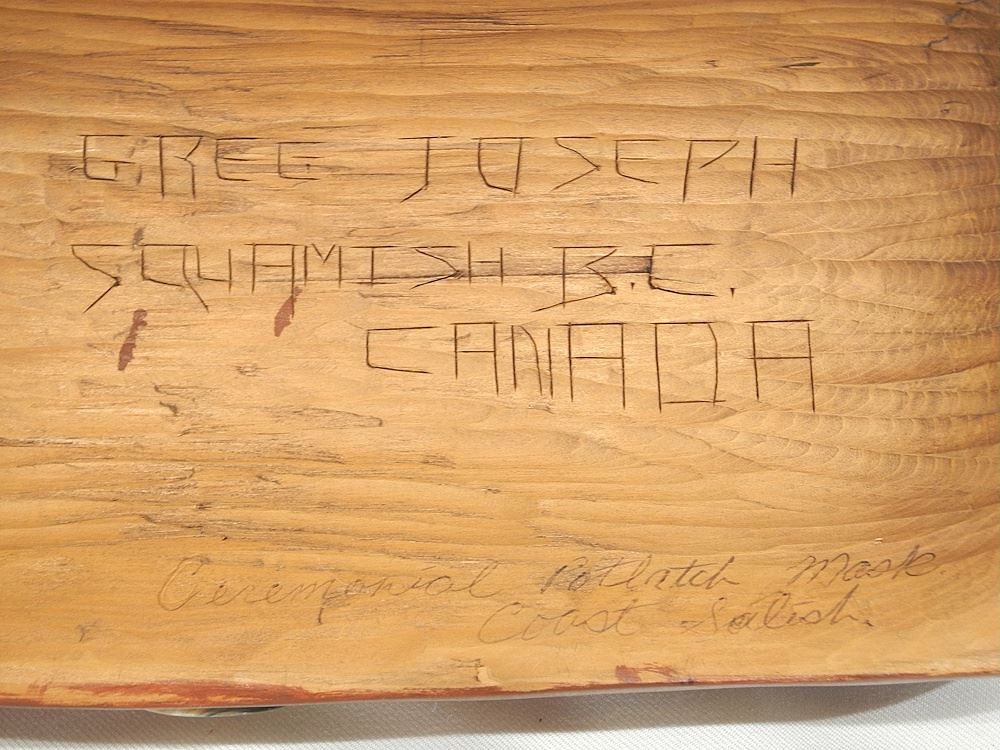 GREG JOSEPH
SQUAMISH B.C.
CANADA
Ceremonial Potlatch Mask.
Coast Salish.